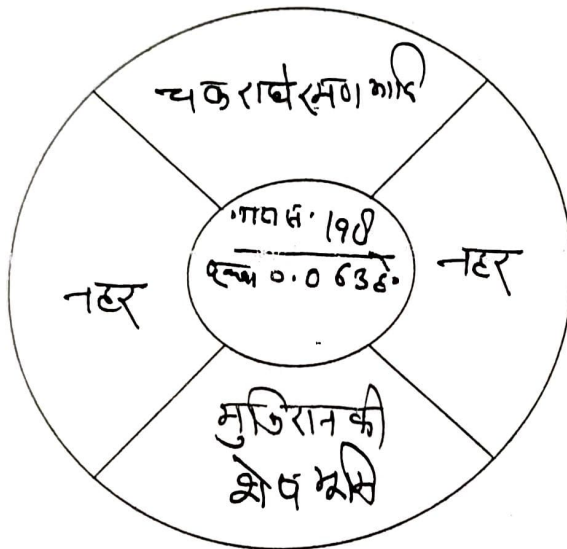 चक राधेरमण आदि
गाटा सं. 198
रकबा 0.063हे.
नहर
नहर
मुजिरान की
शेष भूमि